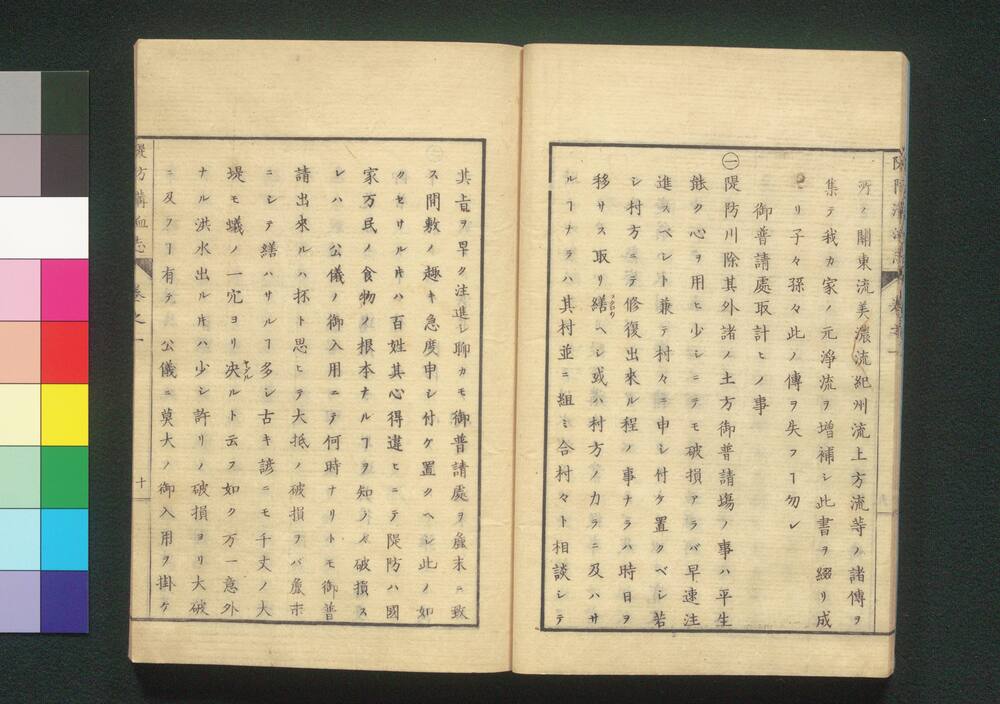 所ノ關東流美濃流紀州流上方流等ノ諸傳ヲ
集テ我カ家ノ元淨流ヲ增補シ此書ヲ綴リ成
セリ子々孫々此ノ傳ヲ失フヿ勿レ
御普請處取計ヒノ事
㊀隄防川除其外諸ノ土方御普請塲ノ事ハ平生
能ク心ヲ用ヒ少シニテモ破損アラバ早速注
進スベシト兼テ村々ニ申シ付ケ置クベシ若
シ村方ニテ修復出來ル程ノ事ナラハ時日ヲ
移サス取リ繕ヘシ或ハ村方ノカラニ及ハサ
ルヿナラハ其村並ニ組ミ合村々ト相談シテ
其旨ヲ早ク注進シ聊カモ御普請處ヲ麁末ニ致
ス間敷ノ趣キ急度申シ付ケ置クヘシ此ノ如
クセサル片ハ百姓其心得違ヒニテ隄防ハ國
家万民ノ食物ノ根本ナルヿヲ知ラズ破損ス
レハ 公儀ノ御入用ニテ何時ナリトモ御普
請出來ルハ抔ト思ヒテ大抵ノ破損ヲバ麁末
ニシテ繕ハサルヿ多シ古キ諺ニモ千丈ノ大
堤モ蟻ノ一穴ヨリ決ルト云フ如ク万一意外
ナル洪水出ル片ハ少シ許リノ破損ヨリ大破
ニ及フヿ有テ 公儀ニ莫大ノ御入用ヲ掛ケ
隄防溝洫志 卷之一 十